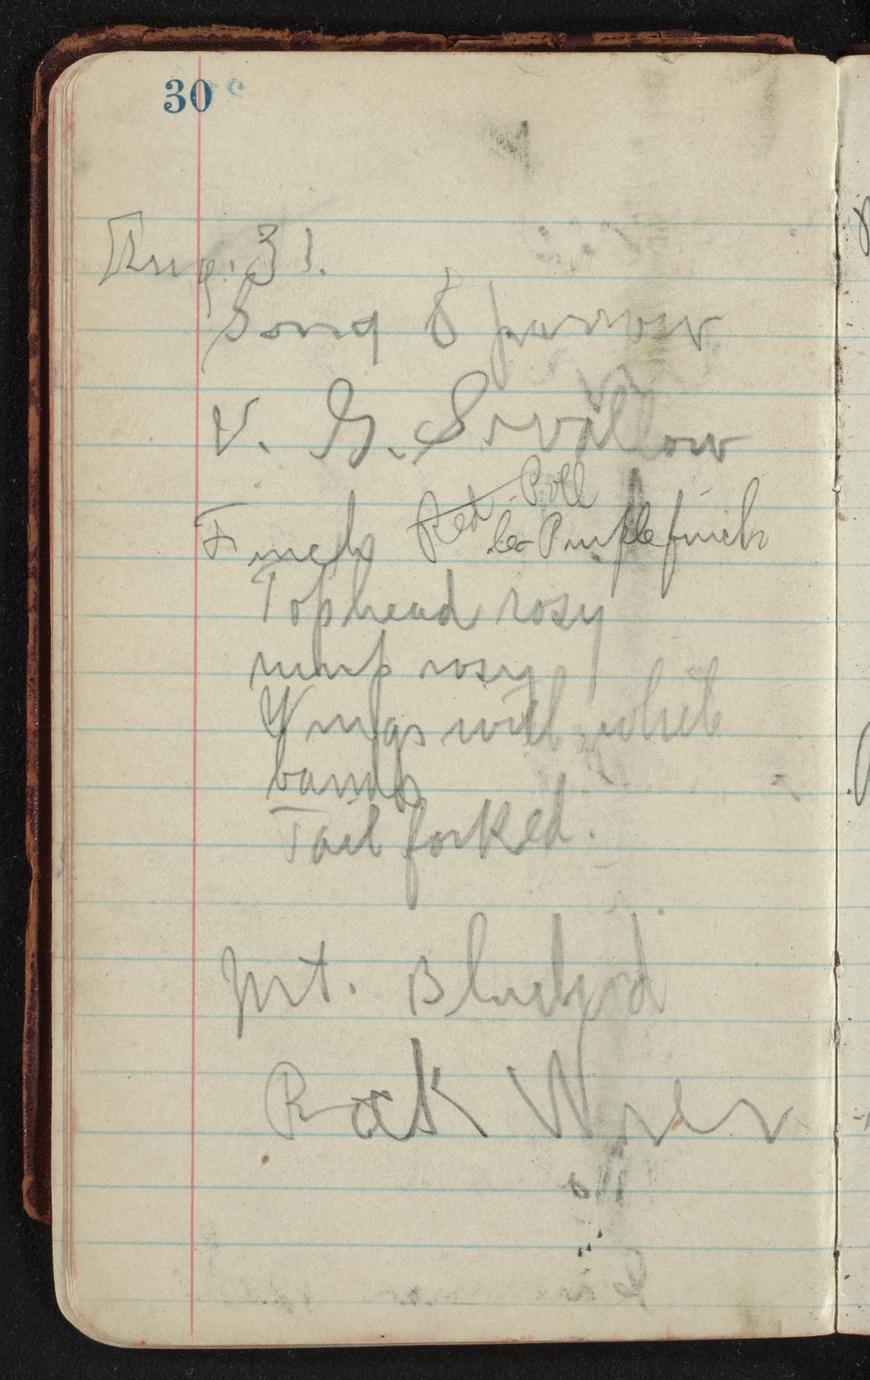 30
Aug. 31.
Song Sparrow
V. G. Swallow
Finch Red-Poll
Purple finch
Top head rosy
rump rosy
Wings with white
bands
Tail forked.
Mt. Bluebird
Rock Wren